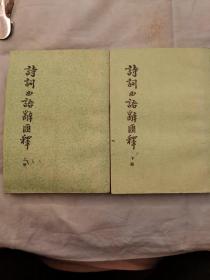 詩詞曲語辭匯釋
詩詞曲語辭匯釋
下冊